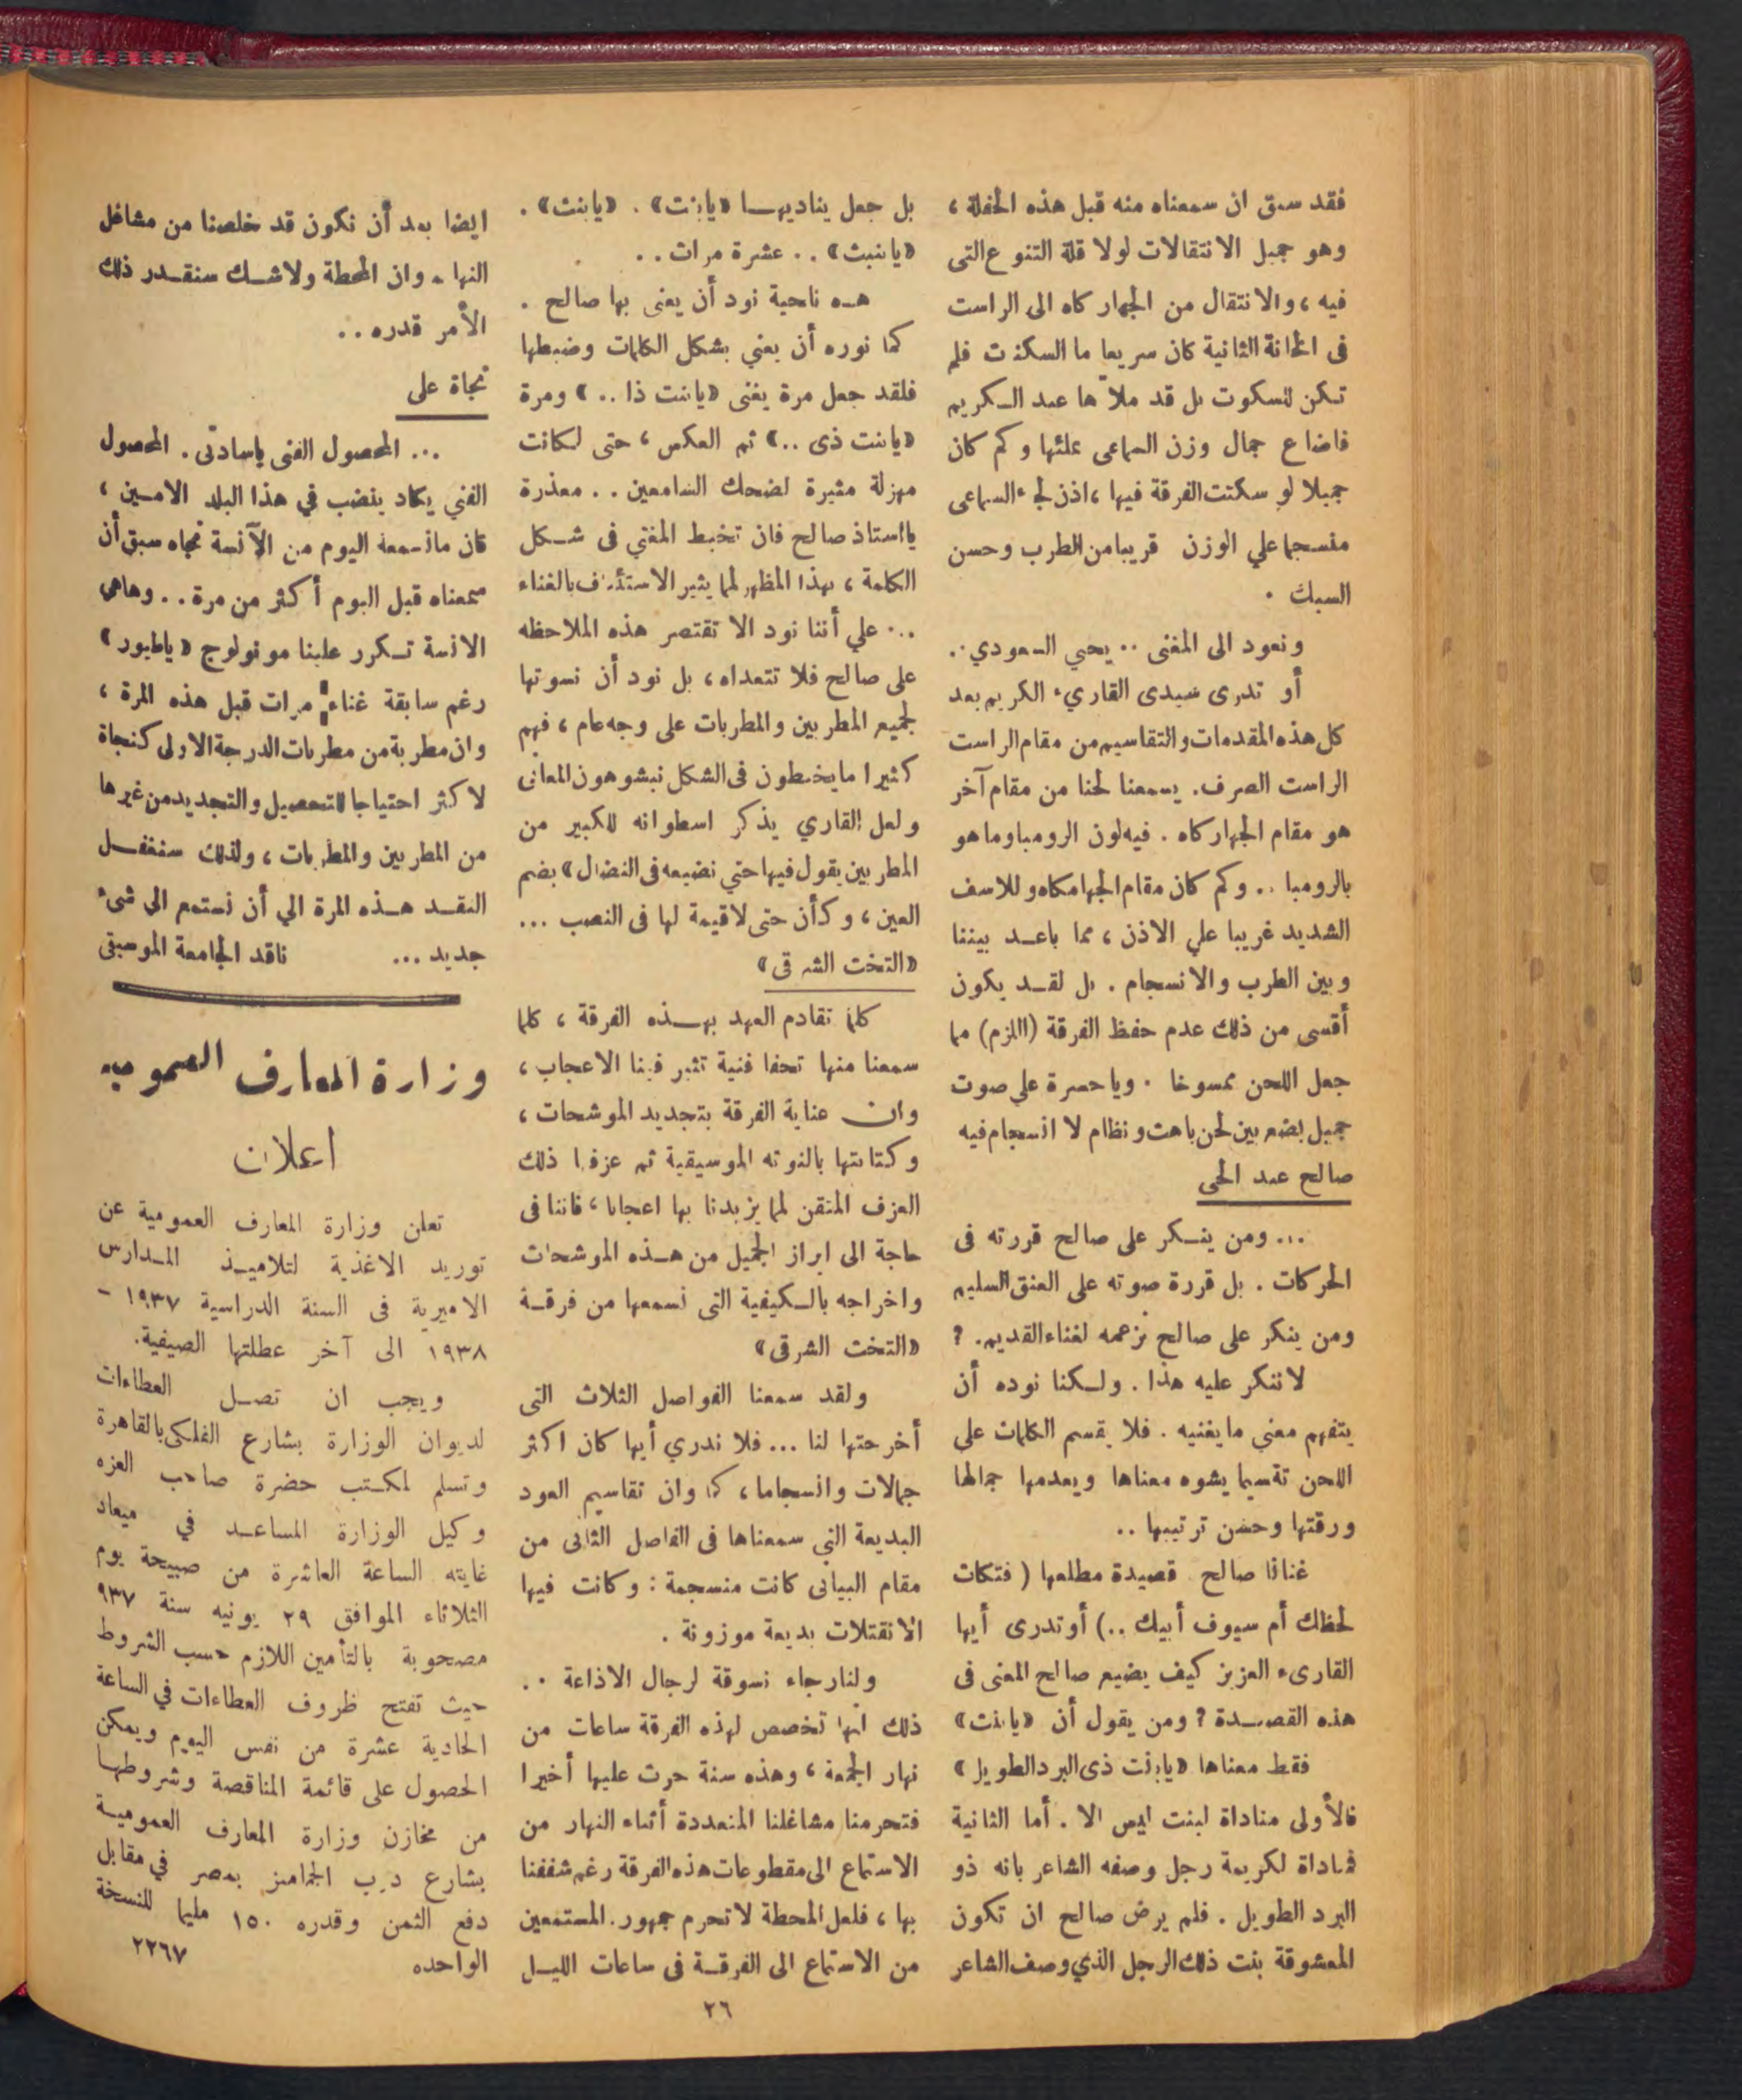 فقد سبق ان سمعناه منه قبل هذه الحفلة ،
وهو جميل الانتقالات لولا قلة التنوع التى
فيه ، والانتقال من الجهاركاه الى الراست
فى الخانة الثانية كان سريعا ما السكنت فلم
تكن للسكوت بل قد ملأها عبد الكريم
فاضاع جمال وزن السماعى بملئها وكم كان
جميلا لو سكتت الفرقة فيها ، اذن لجاء السماعى
منسجما علي الوزن قريبا من الطرب وحسن
السبك .
ونعود الى المغنى .. يحي السعودي ..
أو تدرى سيدى القارىء الكريم بعد
كل هذه المقدمات والتقاسيم من مقام الراست
الراست الصرف . يسمعنا لحنا من مقام آخر
هو مقام الجهاركاه . فيه لون الرومبا وما هو
بالرومبا .. وكم كان مقام الجهامكاه وللاسف
الشديد غريبا علي الاذن ، مما باعد بيننا
وبين الطرب والانسجام . بل لقد يكون
أقسى من ذلك عدم حفظ الفرقة (اللزم) مما
جعل اللحن ممسوخا . وياحسرة علي صوت
جميل يضيع بين لحن باهت ونظام لا انسجام فيه
صالح عبد الحى
... ومن ينكر على صالح قررته فى
الحركات . بل قررة صوته على العنق السليم
ومن ينكر على صالح تزعمه لغناء القديم . ?
لاننكر عليه هذا . ولكنا نوده أن
يتفهم معني مايغنيه . فلا يقسم الكلمات علي
اللحن تقسيما يشوه معناها ويعدمها جمالها
ورقتها وحسن ترتيبها ..
غنانا صالح قصيدة مطلعها ( فتكات
لحظك أم سيوف أبيك ..) أوتدرى أيها
القارىء العزيز كيف يضيع صالح المعنى فى
هذه القصيدة ? ومن يقول أن «يابنت»
فقط معناها «يابنت ذى البرد الطويل»
فالأولى مناداة لبنت ليس الا . أما الثانية
فمناداة لكريمة رجل وصفه الشاعر بانه ذو
البرد الطويل . فلم يرض صالح ان تكون
المعشوقة بنت ذلك الرجل الذي وصف الشاعر
بل جعل يناديها «يابنت» . «يابنت» .
«يابنبت» .. عشرة مرات ..
هذه ناحية نود أن يعنى بها صالح .
كما نوره أن يعني بشكل الكلمات وضبطها
فلقد جعل مرة يغنى «يابنت ذا .. » ومرة
«يابنت ذى ..» ثم العكس ، حتى لكانت
مهزلة مثيرة لضحك السامعين .. معذرة
يااستاذ صالح فان تخبط المغني فى شكل
الكلمة ، بهذا المظهر لمما يثير الاستئناف بالغناء
... علي أننا نود الا تقتصر هذه الملاحظه
على صالح فلا تتعداه ، بل نود أن نسوتها
لجميع المطربين والمطربات على وجه عام ، فهم
كثيرا مايخبطون فى الشكل نيشوهون المعانى
ولعل القاري يذكر اسطوانه للكبير من
المطربين يقول فيها حتي نضيعه فى النضال» بضم
العين ، وكأن حتى لاقيمة لها فى النصب ...
«التخت الشرقى»
كلما تقادم العهد بهذه الفرقة ، كلما
سمعنا منها تحفا فنية تثير فينا الاعجاب ،
وان عناية الفرقة بتجديد الموشحات ،
وكتابتها بالنوته الموسيقية ثم عزفها ذلك
العزف المتقن لمما يزيدنا بها اعجابا ، فاننا فى
حاجة الى ابراز الجميل من هذه الموشحات
واخراجه بالكيفية التى نسمعها من فرقة
«التخت الشرقى»
ولقد سمعنا الفواصل الثلاث التى
أخرجتها لنا ... فلا ندري أيها كان اكثر
جمالات وانسجاما ، كما وان تقاسيم العود
البديعة التي سمعناها فى الفاصل الثانى من
مقام البيانى كانت منسجمة : وكانت فيها
الانقتلات بديعة موزونة .
ولنارجاء نسوقة لرجال الاذاعة ..
ذلك انها تخصص لهذه الفرقة ساعات من
نهار الجمعة ، وهذه سنة جرت عليها أخيرا
فتحرمنا مشاغلنا المتعددة أثناء النهار من
الاستماع الى مقطوعات هذه الفرقة رغم شغفنا
بها ، فلعل المحطة لاتحرم جمهور . المستمعين
من الاستماع الى الفرقة فى ساعات الليل
ايضا بعد أن نكون قد خلصنا من مشاغل
النهار . وان المحطة ولاشك سنقدر ذلك
الأمر قدره ..
نجاة على
... المحصول الفنى ياسادتى . المحصول
الفني يكاد ينضب في هذا البلد الامين ،
فان مانسمعه اليوم من الآنسة نجاه سبق أن
سمعناه قبل اليوم أكثر من مرة .. وهاهى
الانسة تكرر علينا مونولوج «ياطيور»
رغم سابقة غناءه مرات قبل هذه المرة ،
وان مطربة من مطربات الدرجة الاولى كنجاة
لاكثر احتياجا للتحصيل والتجديد من غيرها
من المطربين والمطربات ، ولذلك سنغفل
النقد هذه المرة الي أن نستمع الى شىء
جديد ... ناقد الجامعة الموسيقى
وزارة المعارف العموميه
اعلان
تعلن وزارة المعارف العمومية عن
توريد الاغذية لتلاميذ المدارس
الاميرية فى السنة الدراسية ١٩٣٧ -
١٩٣٨ الى آخر عطلتها الصيفية.
ويجب ان تصل العطاءات
لديوان الوزارة بشارع الفلكى بالقاهرة
وتسلم لمكتب حضرة صاحب العزه
وكيل الوزارة المساعد في ميعاد
غايته الساعة العاشرة من صبيحة يوم
الثلاثاء الموافق ٢٩ يونيه سنة ٩٣٧
مصحوبة بالتأمين اللازم حسب الشروط
حيث تفتح ظروف العطاءات في الساعة
الحادية عشرة من نفس اليوم ويمكن
الحصول على قائمة المناقصة وشروطها
من مخازن وزارة المعارف العمومية
بشارع درب الجماميز بمصر في مقابل
دفع الثمن وقدره ١٥٠ مليما للنسخة
الواحده ٢٢٦٧
٢٦